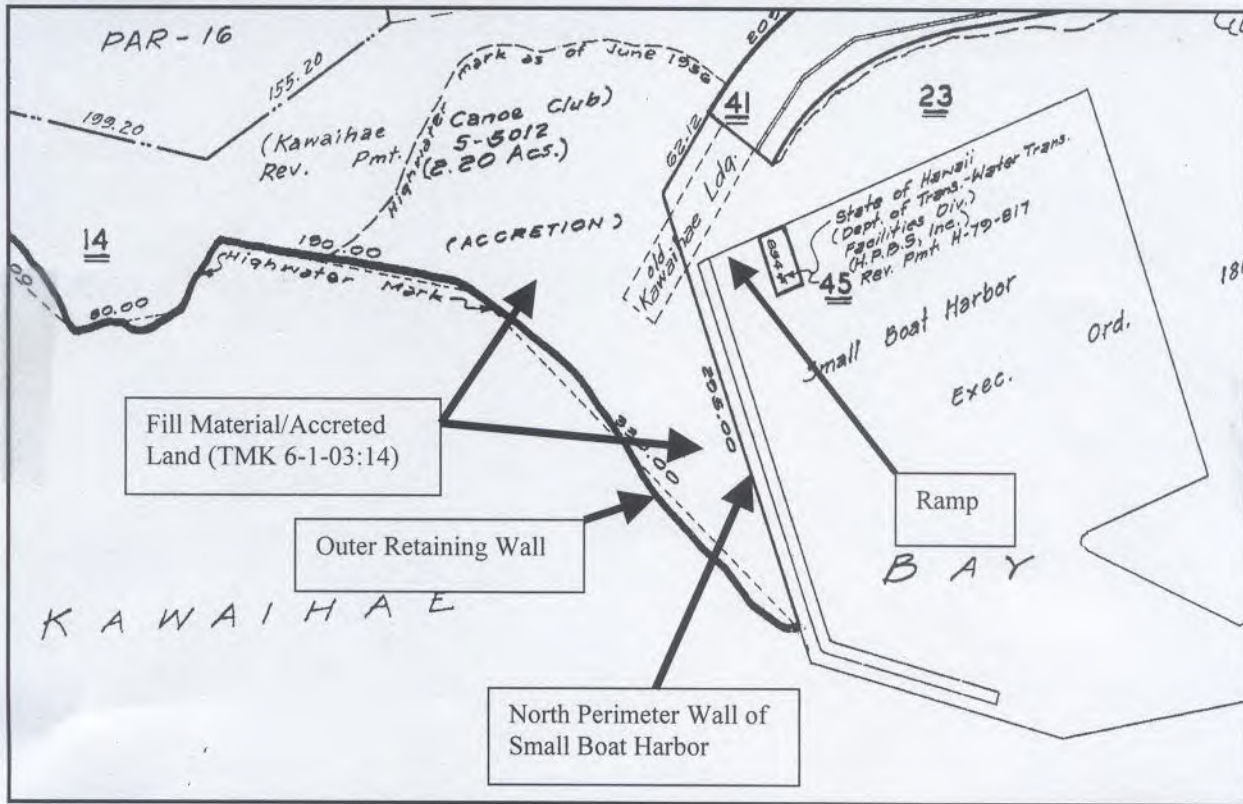 PAR-16
155.20
199.20
Highwater mark as of June 1936
(Kawaihae Canoe Club)
Rev. Pmt. S-5012
(2.20 Acs.)
(ACCRETION)
62.12
41
23
Old Kawaihae Ldg.
State of Hawaii
(Dept. of Trans.-Water Trans.
Facilities Div.)
(H.P.B.S, Inc.)
Rev. Pmt H-79-817
45
Small Boat Harbor
Exec. Ord.
14
190.00
Highwater Mark
80.00
205.00
Fill Material/Accreted
Land (TMK 6-1-03:14)
Outer Retaining Wall
Ramp
North Perimeter Wall of
Small Boat Harbor
KAWAIHAE
BAY